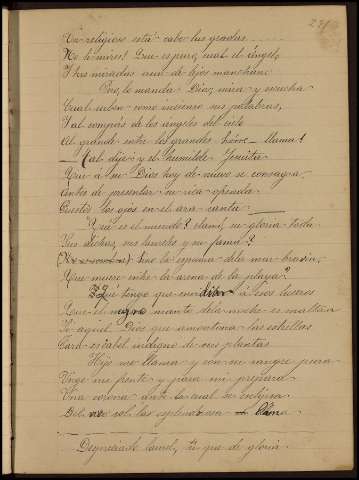 Un religioso está cabe las gradas . . . . .
No le mires! Que es puro, cual el ángel,
I tus miradas aun de lejos manchan:
Pero, le manda Dios, mira y escucha
Cual suben como incienso sus palabras,
I al compás de los ángeles del cielo
Al grande entre los grandes llama!
— I así dijo y el humilde Jesuita
Que á su Dios hoy de nuevo se consagra,
Antes de presentar su rica ofrenda
Puestos los ojos en el ara canta: —
Qué es el mundo? clamó, su gloria toda
Sus dichas, sus laureles y su fama?
sino la espuma de la mar bravía,
Que muere entre la arena de la playa?
Qué tengo que envidiar á esos luceros
Que el negro manto de la noche esmaltan
Si aquel Dios que amontona las estrellas
Para escabel indigno de sus plantas
Hijo me llama y con su sangre pura
Unge mi frente y para mí prepara
Una corona ante la cual se eclipsa
Del vivo sol la esplendorosa llama
Despreciado laurel, tú que de gloria